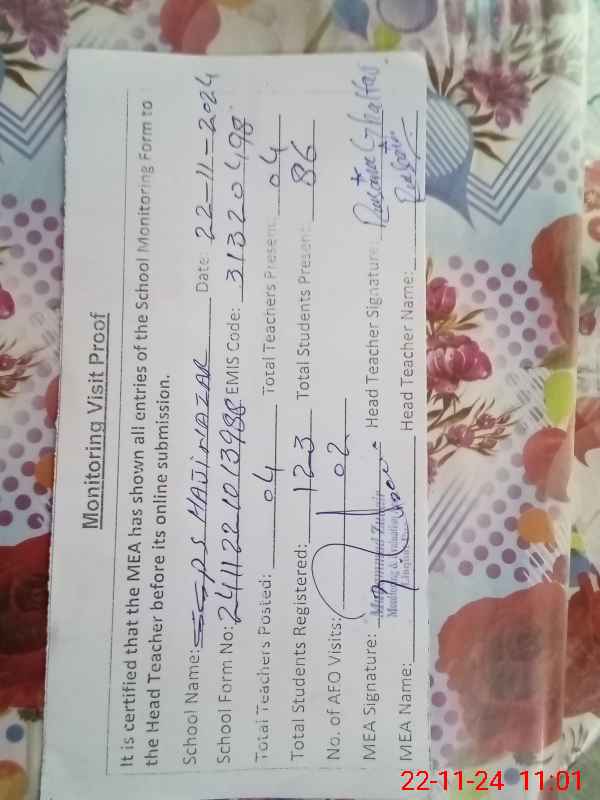 Monitoring Visit Proof
It is certified that the MEA has shown all entries of the School Monitoring Form to
the Head Teacher before its online submission.
School Name: GGPS HAJI NAZAR Date: 22-11-2024
School Form No: 2411122101398 EMIS Code: 31320498
Total Teachers Posted: 04 Total Teachers Present: 04
Total Students Registered: 123 Total Students Present: 86
No. of AEO Visits: 02
MEA Signature: Muhammad Head Teacher Signature:
Monitoring &
MEA Name: Head Teacher Name:
22-11-24 11:01